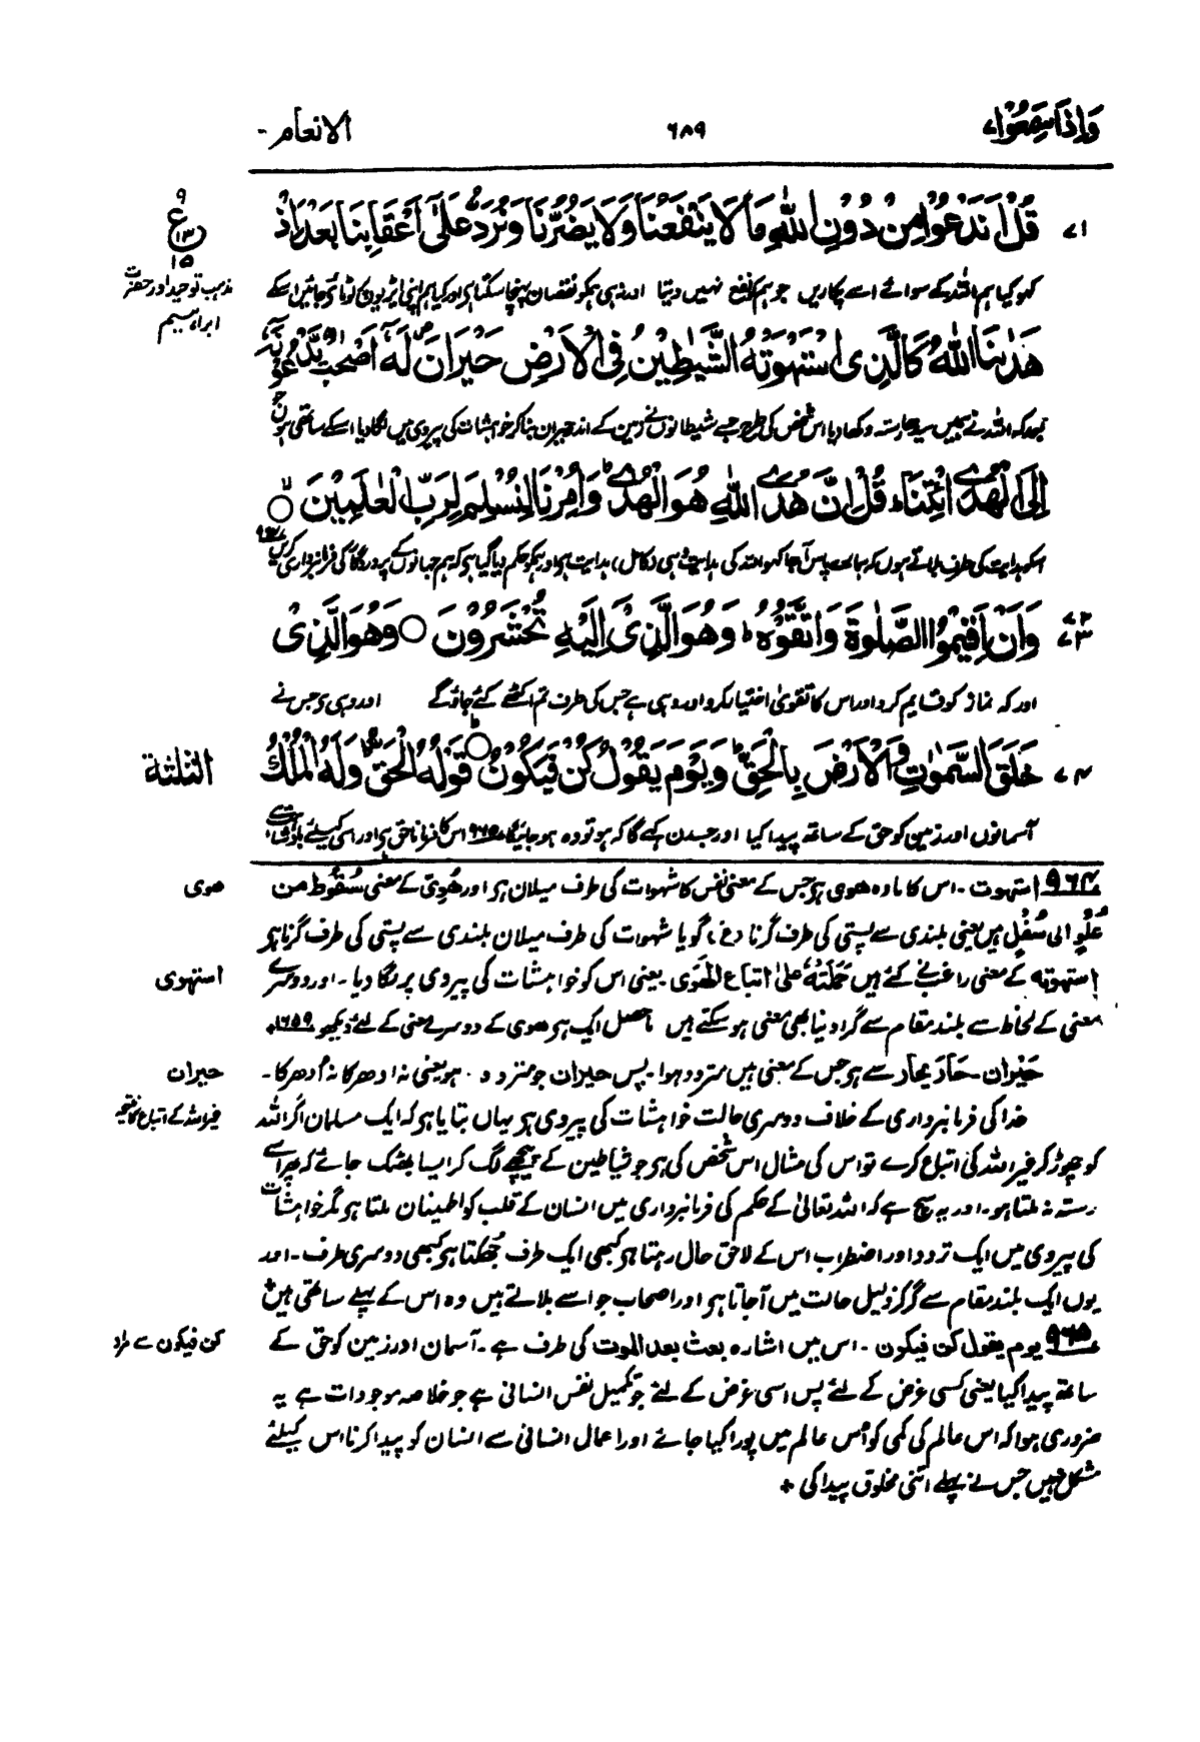 وَاِذَا سَمِعُوْا ۷
۶۸۹
الانعام-
۷۱ قُلْ اَنَدْعُوْا مِنْ دُوْنِ اللّٰهِ مَا لَا یَنْفَعُنَا وَلَا یَضُرُّنَا وَنُرَدُّ عَلٰٓی اَعْقَابِنَا بَعْدَ اِذْ
۹
ع
۱۳
۱۵
کہو کیا ہم اللہ کے سوائے اسے پکاریں جو ہم کو نفع نہیں دیتا اور نہ ہی ہم کو نقصان پہنچا سکتا ہے اور کیا ہم اپنی ایڑیوں پر لوٹائے جائیں اسکے
مذہب توحید اور حضرت
ابراہیم
هَدٰىنَا اللّٰهُ كَالَّذِی اسْتَهْوَتْهُ الشَّیٰطِیْنُ فِی الْاَرْضِ حَیْرَانَ لَهٗٓ اَصْحٰبٌ یَّدْعُوْنَهٗٓ
بعد کہ اللہ نے ہمیں سیدھا رستہ دکھا دیا اس شخص کی طرح جسے شیطانوں نے زمین کے اندر حیران بنا کر خواہشات کی پیروی میں لگا دیا اسکے ساتھی ہوں جو
اِلَی الْهُدَی ائْتِنَا قُلْ اِنَّ هُدَی اللّٰهِ هُوَ الْهُدٰی وَاُمِرْنَا لِنُسْلِمَ لِرَبِّ الْعٰلَمِیْنَ ۝
اسکو ہدایت کی طرف بلاتے ہوں کہ ہمارے پاس آجا کہو اللہ کی ہدایت وہی (کامل) ہدایت ہے اور ہم کو حکم دیا گیا ہے کہ ہم جہانوں کے پروردگار کی فرمانبرداری کریں ۹۶۴
۷۲ ۷۳ وَاَنْ اَقِیْمُوا الصَّلٰوةَ وَاتَّقُوْهُ وَهُوَ الَّذِیْٓ اِلَیْهِ تُحْشَرُوْنَ ۝ وَهُوَ الَّذِیْ
اور کہ نماز کو قایم کرو اور اس کا تقویٰ اختیار کرو اور وہی ہے جس کی طرف تم اکٹھے کئے جاؤ گے اور وہی ہے جس نے
۷۴ خَلَقَ السَّمٰوٰتِ وَالْاَرْضَ بِالْحَقِّ وَیَوْمَ یَقُوْلُ كُنْ فَیَكُوْنُ قَوْلُهُ الْحَقُّ وَلَهُ الْمُلْكُ
الثلثة
آسمانوں اور زمین کو حق کے ساتھ پیدا کیا اور جس دن کہے گا کہ ہو تو وہ ہو جائیگا ۹۶۵ اس کا فرمانا حق ہے اور اسی کیلئے بادشاہت ہے
۹۶۴ استهوت۔ اس کا مادہ ھوی ہے جس کے معنی نفس کا شہوات کی طرف میلان ہے اور هُوِيّ کے معنی سُقُوط من
ھوی
عُلُوٍّ الی سُفْلٍ ہیں یعنی بلندی سے پستی کی طرف گرنا (غ) گویا شہوات کی طرف میلان بلندی سے پستی کی طرف گرنا ہے
استهوته کے معنی راغب نے کئے ہیں حَمَلَتْهُ علیٰ اتباع الهَوٰی۔ یعنی اس کو خواہشات کی پیروی پر لگا دیا۔ اور دوسرے
استهوی
معنی کے لحاظ سے بلند مقام سے گرا دینا بھی معنی ہو سکتے ہیں ماحصل ایک ہی ھوی کے دوسرے معنی کے لئے دیکھو ۱۶۵۹+
حَیْران۔ حَارَ یحار سے ہے جس کے معنی ہیں متردد ہوا۔ پس حیران جو متردد ہو یعنی نہ ادھر کا نہ اُدھر کا۔
حیران
خدا کی فرمانبرداری کے خلاف دوسری حالت خواہشات کی پیروی ہے یہاں بتایا ہے کہ ایک مسلمان اگر اللہ
غیر اللہ کے اتباع کا نتیجہ
کو چھوڑ کر غیر اللہ کی اتباع کرے تو اس کی مثال اس شخص کی ہے جو شیاطین کے پیچھے لگ کر ایسا بھٹک جائے کہ پھر اسے
رستہ نہ ملتا ہو۔ اور یہ سچ ہے کہ اللہ تعالیٰ کے حکم کی فرمانبرداری میں انسان کے قلب کو اطمینان ملتا ہے مگر خواہشات
کی پیروی میں ایک تردد اور اضطراب اس کے لاحق حال رہتا ہے کبھی ایک طرف جھکتا ہے کبھی دوسری طرف۔ اور
یوں ایک بلند مقام سے گر کر ذلیل حالت میں آجاتا ہے اور اصحاب جو اسے بلاتے ہیں وہ اس کے پہلے ساتھی ہیں+
۹۶۵ یوم یقول کن فیکون۔ اس میں اشارہ بعث بعد الموت کی طرف ہے۔ آسمان اور زمین کو حق کے
کن فیکون سے مراد
ساتھ پیدا کیا یعنی کسی غرض کے لئے پس اسی غرض کے لئے جو تکمیل نفس انسانی ہے جو خلاصہ موجودات ہے یہ
ضروری ہوا کہ اس عالم کی کمی کو اُس عالم میں پورا کیا جائے اور اعمال انسانی سے انسان کو پیدا کرنا اس کیلئے
مشکل نہیں جس نے پہلے اتنی مخلوق پیدا کی +